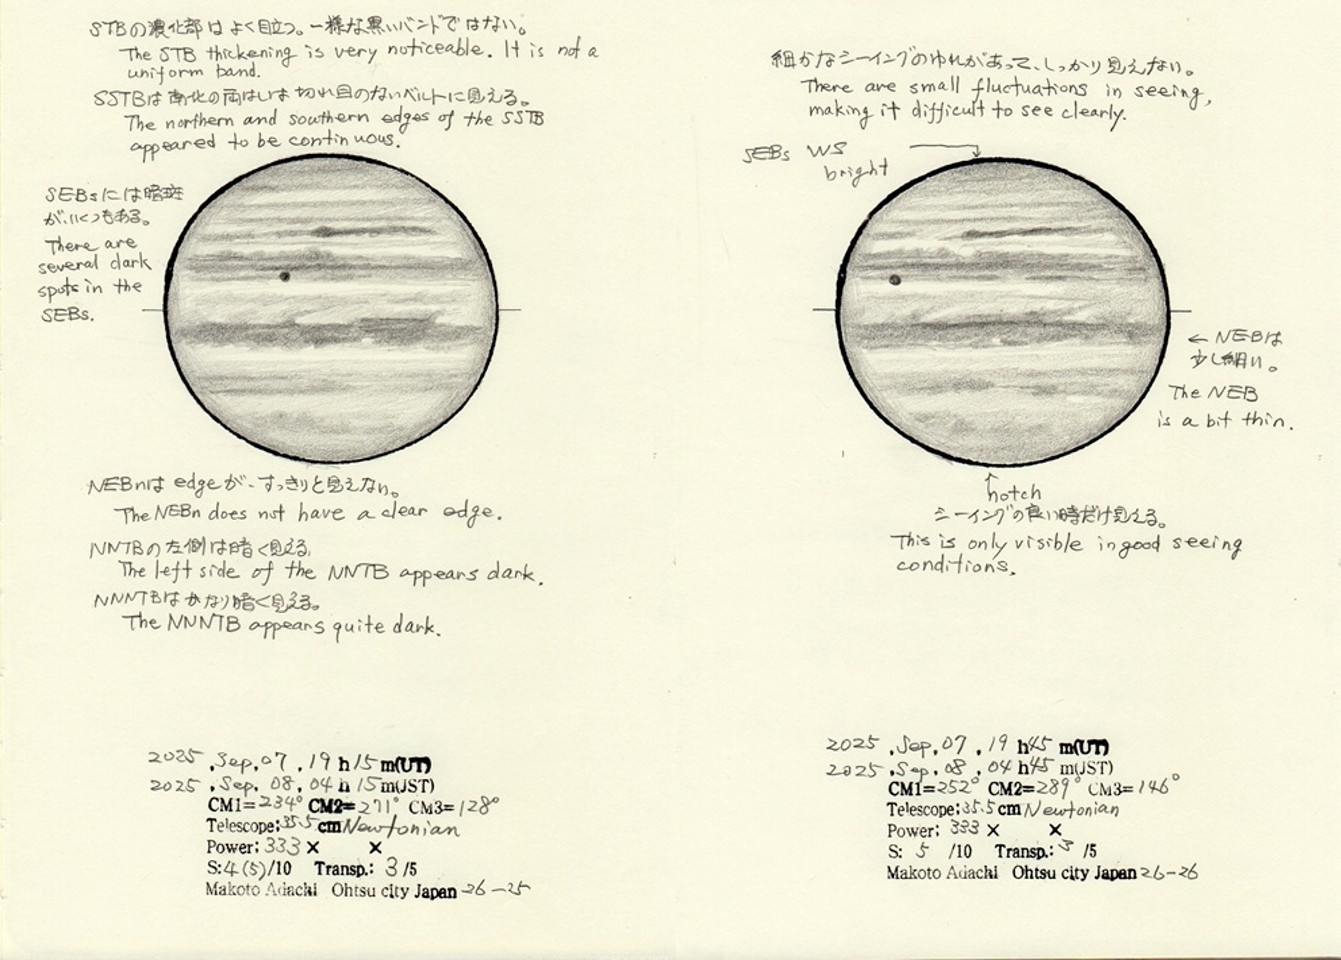 STBの濃化部はよく目立つ。一様な黒いバンドではない。
The STB thickening is very noticeable. It is not a
uniform band.
SSTBは南北の両はじは切れ目のないベルトに見える。
The northern and southern edges of the SSTB
appeared to be continuous.
SEBsには暗斑
がいくつもある。
There are
several dark
spots in the
SEBs.
NEBnはedgeが、すっきりと見えない。
The NEBn does not have a clear edge.
NNTBの左側は暗く見える。
The left side of the NNTB appears dark.
NNNTBはかなり暗く見える。
The NNNTB appears quite dark.
2025 ,Sep,07 ,19 h15 m(UT)
2025 ,Sep. 08 ,04 h 15 m(JST)
CM1=234° CM2=271° CM3=128°
Telescope:35.5cm Newtonian
Power: 333 × ×
S:4(5)/10 Transp.: 3 /5
Makoto Adachi Ohtsu city Japan 26-25
細かなシーイングのゆれがあって、しっかり見えない。
There are small fluctuations in seeing,
making it difficult to see clearly.
SEBs WS
bright
← NEBは
少し細い。
The NEB
is a bit thin.
↑
notch
シーイングの良い時だけ見える。
This is only visible in good seeing
conditions.
2025 ,Sep,07 ,19 h45 m(UT)
2025 ,Sep,08 ,04 h45 m(JST)
CM1=252° CM2=289° CM3=146°
Telescope:35.5cm Newtonian
Power: 333 × ×
S: 5 /10 Transp.: 3 /5
Makoto Adachi Ohtsu city Japan 26-26